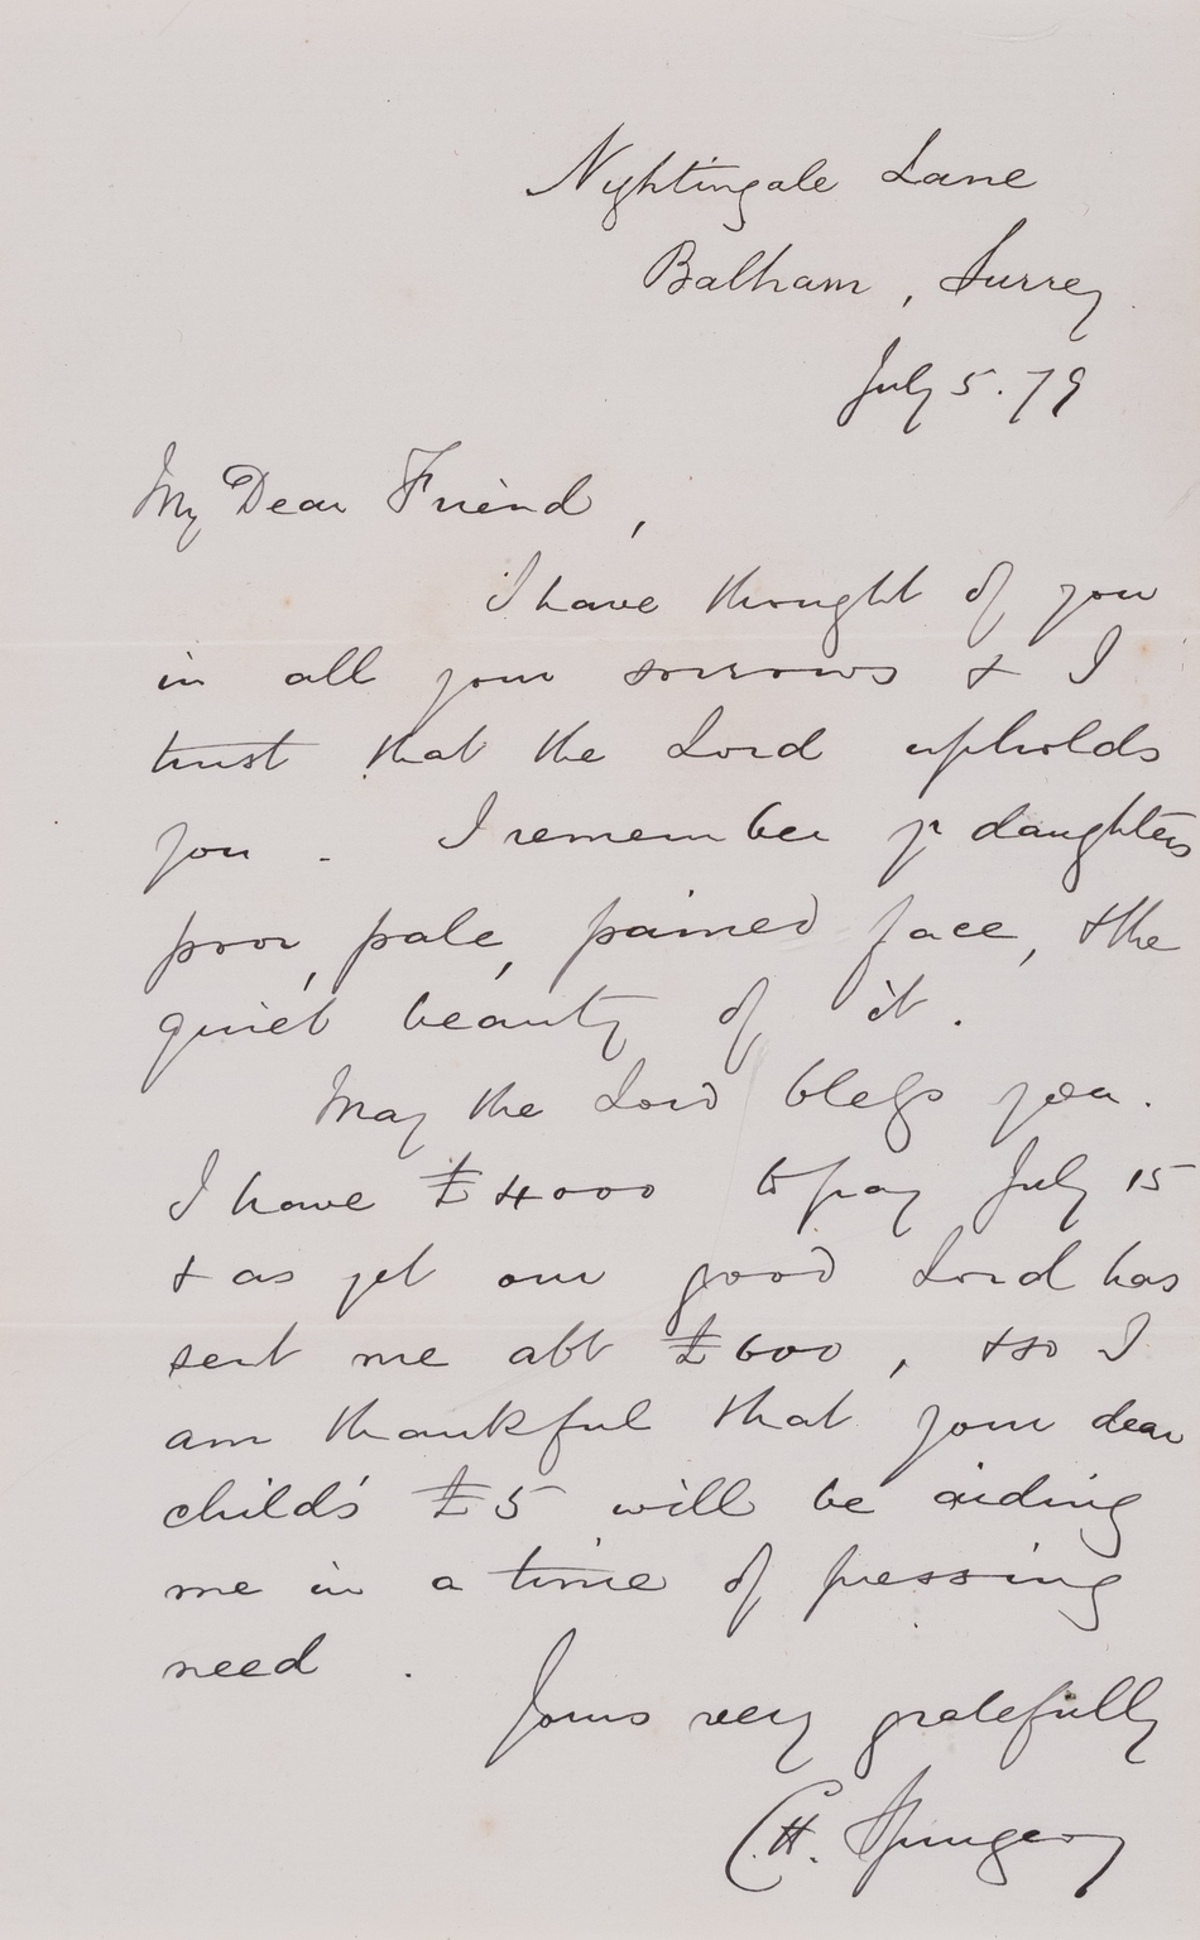 Nightingale Lane
Balham, Surrey
July 5. 79
My Dear Friend,
I have thought of you
in all your sorrows & I
trust that the Lord upholds
you. I remember yr daughters
poor, pale, pained face, & the
quiet beauty of it.
May the Lord bless you.
I have £4000 to pay July 15
& as yet our good Lord has
sent me abt £600, & so I
am thankful that your dear
child's £5 will be aiding
me in a time of pressing
need.
Yours very gratefully
C. H. Spurgeon